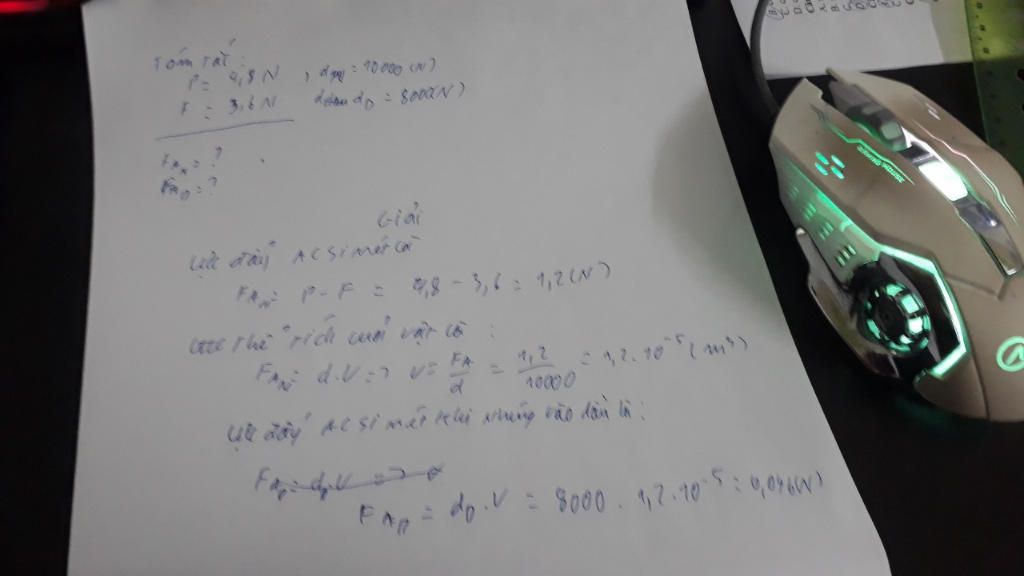 Tóm tắt:
P = 4,8 N , d = 10000 (N)
F = 3,6 N dD = 8000(N)
FAN = ?
FAD = ?
Giải
Lực đẩy Acsimét là
FAN = P - F = 4,8 - 3,6 = 1,2 (N)
Thể tích của vật là :
FAN = d.V => V = FA/d = 1,2/10000 = 1,2.10^-5 (m³)
Lực đẩy Acsimét khi nhúng vào dầu là :
FAD = dD.V =>
FAD = dD.V = 8000 . 1,2.10^-5 = 0,096(N)
GAMING MOUSE